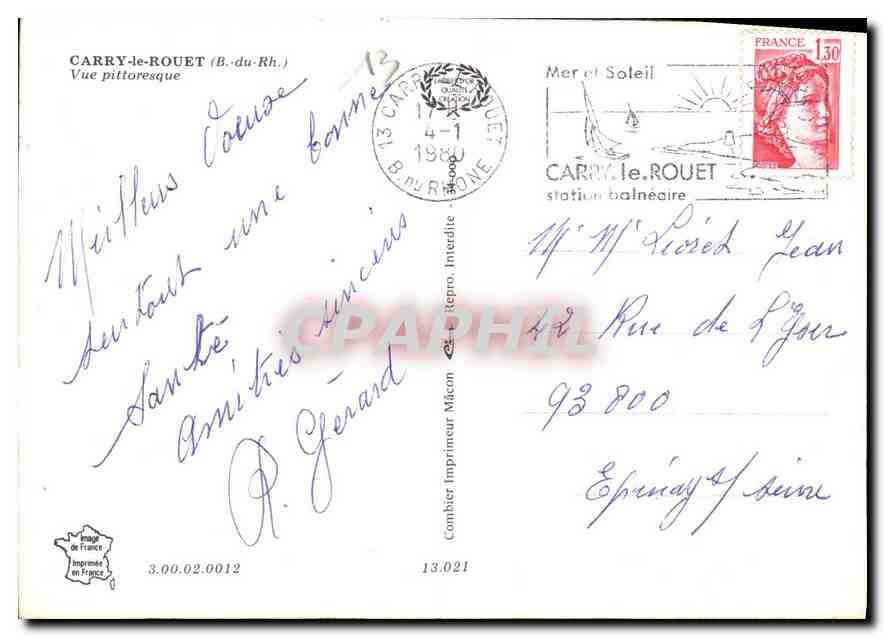 CARRY-le-ROUET (B.-du-Rh.)
Vue pittoresque
13
Meilleurs Voeux
surtout une bonne
Santé
Amitiés sincères
R. Gérard
13 CARRY LE ROUET
LABEL D'OR
QUALITE
CREATION
17 H
4-1
1980
B. DU RHONE
Mer et Soleil
CARRY.le.ROUET
station balnéaire
FRANCE
1,30
Mr Me Jean
42 Rue de L'Yser
93800
Epinay s/ seine
Combier Imprimeur Mâcon Repro. Interdite - 34-000
CPAPHIL
Image
de France
Imprimée
en France
3.00.02.0012
13.021